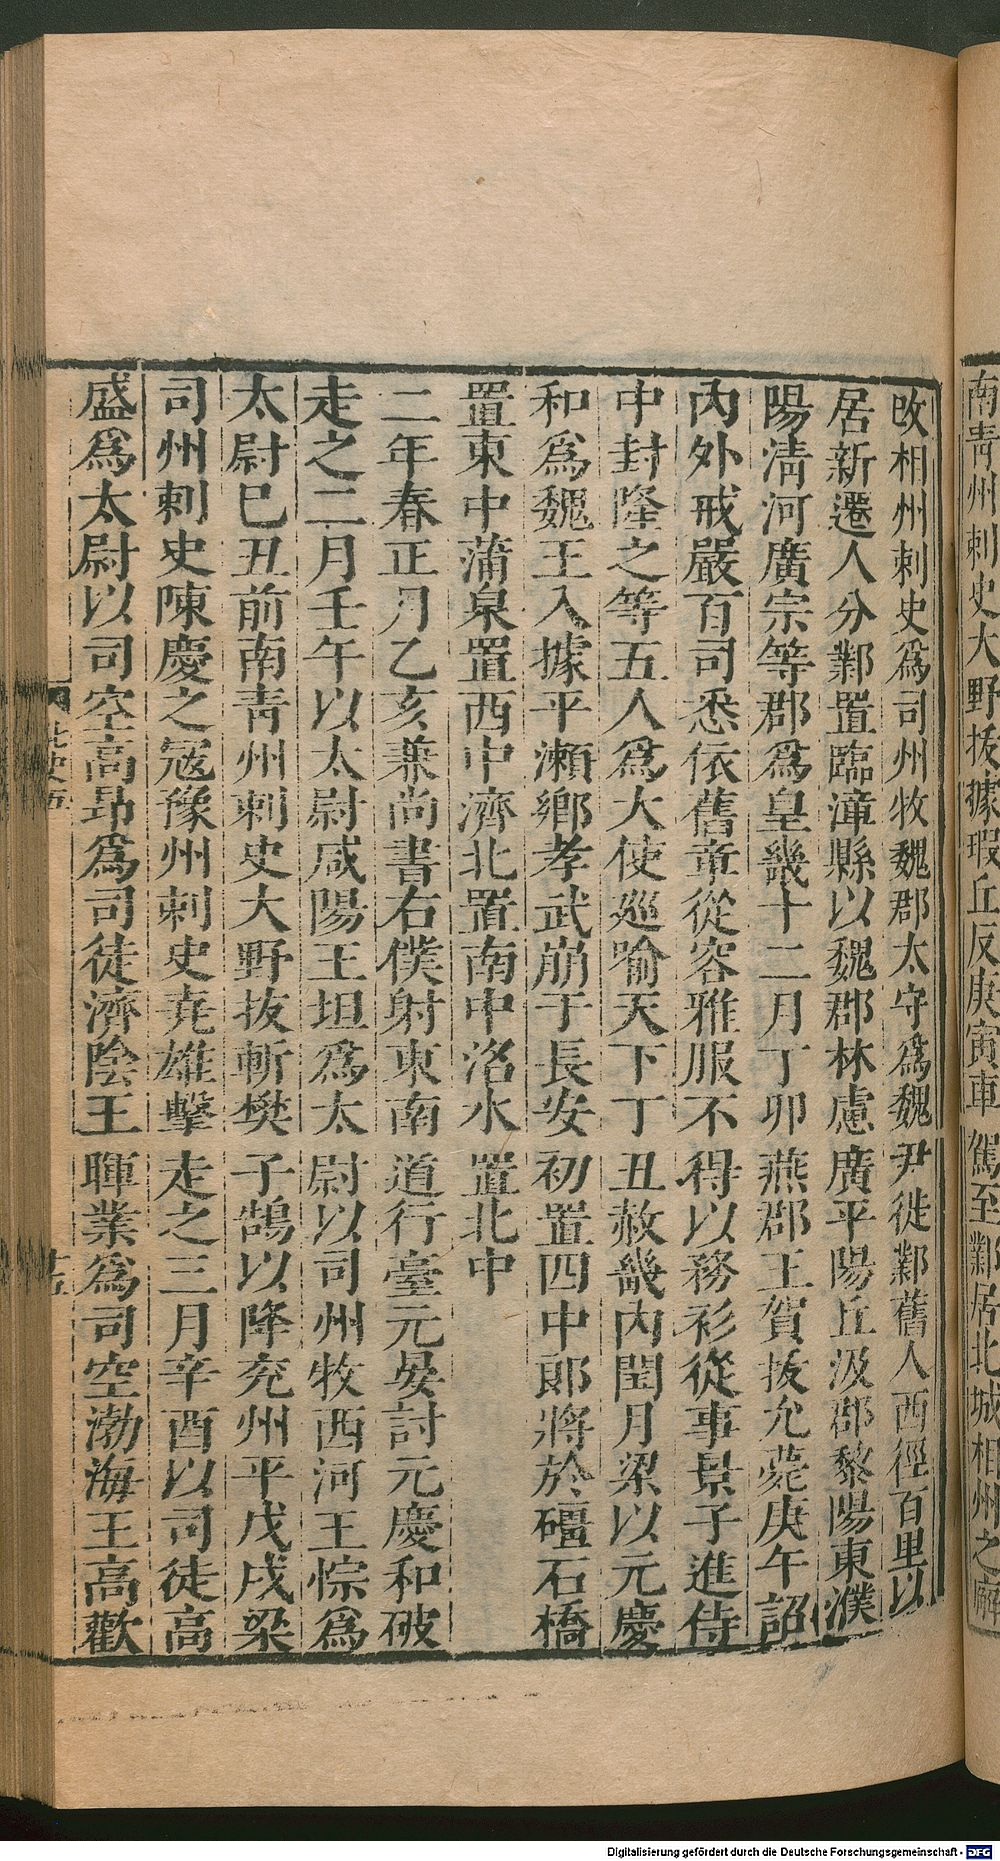 南青州刺史大野拔據瑕丘反庚寅車駕至鄴居北城相州之廨
改相州刺史爲司州牧魏郡太守爲魏尹徙鄴舊人西徑百里以
居新遷人分鄴置臨漳縣以魏郡林慮廣平陽丘汲郡黎陽東濮
陽淸河廣宗等郡爲皇畿十二月丁卯燕郡王賀拔允薨庚午詔
內外戒嚴百司悉依舊章從容雅服不得以務衫從事景子進侍
中封隆之等五人爲大使巡喻天下丁丑赦畿內閏月梁以元慶
和爲魏王入據平瀨鄉孝武崩于長安初置四中郞將於礓石橋
置東中蒲泉置西中濟北置南中洛水置北中
二年春正月乙亥兼尚書右僕射東南道行臺元晏討元慶和破
走之二月壬午以太尉咸陽王坦爲太尉以司州牧西河王悰爲
太尉巳丑前南靑州刺史大野拔斬樊子鵠以降兖州平戊戌梁
司州刺史陳慶之冦豫州刺史堯雄擊走之三月辛酉以司徒高
盛爲太尉以司空高昻爲司徒濟陰王暉業爲司空渤海王高歡
Digitalisierung gefördert durch die Deutsche Forschungsgemeinschaft - DFG